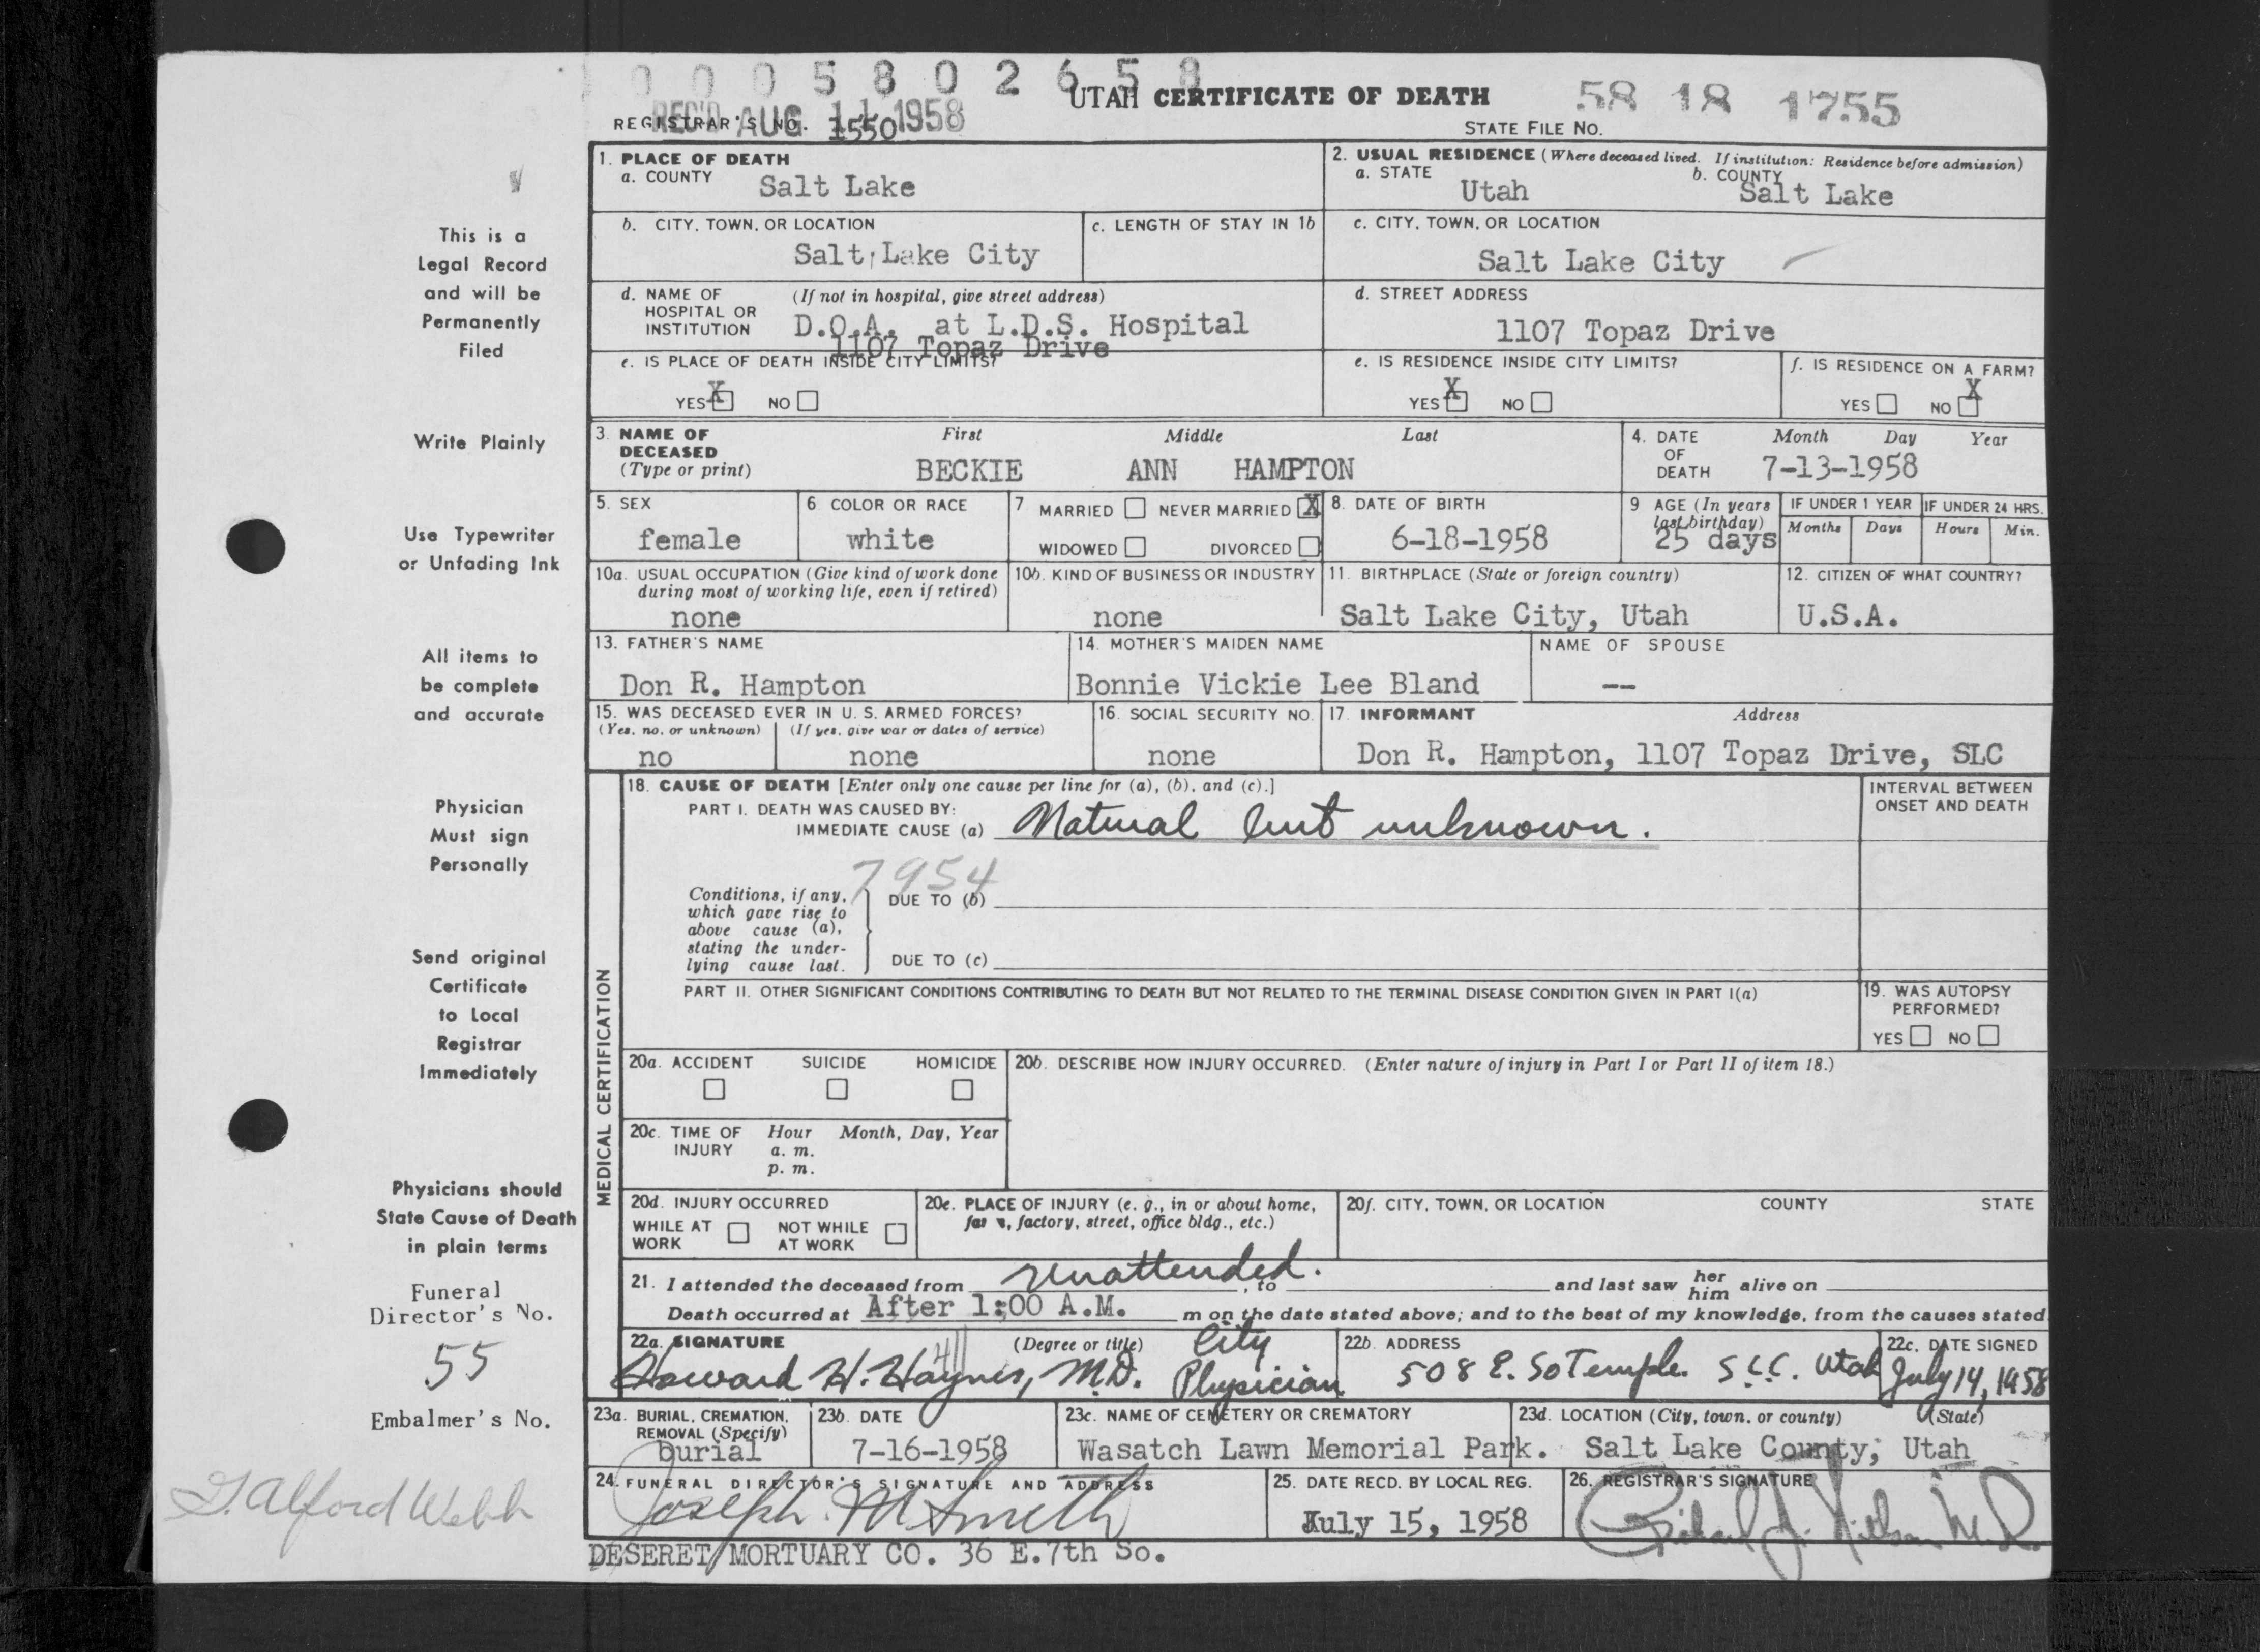 0 0 0 5 8 0 2 6 5 8
UTAH CERTIFICATE OF DEATH
58 18 1755
REC'D AUG 11 1958
REGISTRAR'S NO. 1550
STATE FILE NO.
1. PLACE OF DEATH
a. COUNTY Salt Lake
2. USUAL RESIDENCE (Where deceased lived. If institution: Residence before admission)
a. STATE Utah b. COUNTY Salt Lake
b. CITY, TOWN, OR LOCATION Salt Lake City
c. LENGTH OF STAY IN 1b
c. CITY, TOWN, OR LOCATION Salt Lake City
d. NAME OF HOSPITAL OR INSTITUTION (If not in hospital, give street address)
D.O.A. at L.D.S. Hospital
1107 Topaz Drive
d. STREET ADDRESS
1107 Topaz Drive
e. IS PLACE OF DEATH INSIDE CITY LIMITS?
YES X NO
e. IS RESIDENCE INSIDE CITY LIMITS?
YES X NO
f. IS RESIDENCE ON A FARM?
YES NO X
3. NAME OF DECEASED (Type or print) First Middle Last
BECKIE ANN HAMPTON
4. DATE OF DEATH Month Day Year
7-13-1958
5. SEX female
6 COLOR OR RACE white
7 MARRIED NEVER MARRIED X
WIDOWED DIVORCED
8. DATE OF BIRTH 6-18-1958
9 AGE (In years last birthday) 25 days
IF UNDER 1 YEAR Months Days
IF UNDER 24 HRS. Hours Min.
10a. USUAL OCCUPATION (Give kind of work done during most of working life, even if retired)
none
10b. KIND OF BUSINESS OR INDUSTRY
none
11. BIRTHPLACE (State or foreign country)
Salt Lake City, Utah
12. CITIZEN OF WHAT COUNTRY?
U.S.A.
13. FATHER'S NAME
Don R. Hampton
14. MOTHER'S MAIDEN NAME
Bonnie Vickie Lee Bland
NAME OF SPOUSE
--
15. WAS DECEASED EVER IN U. S. ARMED FORCES?
(Yes, no, or unknown) (If yes, give war or dates of service)
no none
16. SOCIAL SECURITY NO.
none
17. INFORMANT Address
Don R. Hampton, 1107 Topaz Drive, SLC
MEDICAL CERTIFICATION
18. CAUSE OF DEATH [Enter only one cause per line for (a), (b), and (c).]
INTERVAL BETWEEN ONSET AND DEATH
PART I. DEATH WAS CAUSED BY:
IMMEDIATE CAUSE (a) Natural but unknown.
7954
Conditions, if any, which gave rise to above cause (a), stating the underlying cause last.
DUE TO (b)
DUE TO (c)
PART II. OTHER SIGNIFICANT CONDITIONS CONTRIBUTING TO DEATH BUT NOT RELATED TO THE TERMINAL DISEASE CONDITION GIVEN IN PART I(a)
19. WAS AUTOPSY PERFORMED?
YES NO
20a. ACCIDENT SUICIDE HOMICIDE
20b. DESCRIBE HOW INJURY OCCURRED. (Enter nature of injury in Part I or Part II of item 18.)
20c. TIME OF INJURY Hour Month, Day, Year
a. m.
p. m.
20d. INJURY OCCURRED
WHILE AT WORK NOT WHILE AT WORK
20e. PLACE OF INJURY (e. g., in or about home, farm, factory, street, office bldg., etc.)
20f. CITY, TOWN, OR LOCATION COUNTY STATE
21. I attended the deceased from unattended. , to and last saw her him alive on
Death occurred at After 1:00 A.M. m on the date stated above; and to the best of my knowledge, from the causes stated
22a. SIGNATURE (Degree or title)
Howard H. Haynes, M.D. City Physician
22b. ADDRESS
508 E. So Temple. S.L.C. Utah
22c. DATE SIGNED
July 14, 1958
23a. BURIAL, CREMATION, REMOVAL (Specify)
burial
23b. DATE
7-16-1958
23c. NAME OF CEMETERY OR CREMATORY
Wasatch Lawn Memorial Park.
23d. LOCATION (City, town, or county) (State)
Salt Lake County, Utah
24. FUNERAL DIRECTOR'S SIGNATURE AND ADDRESS
Joseph M Smith
DESERET MORTUARY CO. 36 E.7th So.
25. DATE RECD. BY LOCAL REG.
July 15, 1958
26. REGISTRAR'S SIGNATURE
This is a
Legal Record
and will be
Permanently
Filed
Write Plainly
Use Typewriter
or Unfading Ink
All items to
be complete
and accurate
Physician
Must sign
Personally
Send original
Certificate
to Local
Registrar
Immediately
Physicians should
State Cause of Death
in plain terms
Funeral
Director's No.
55
Embalmer's No.
G. Alford Webb